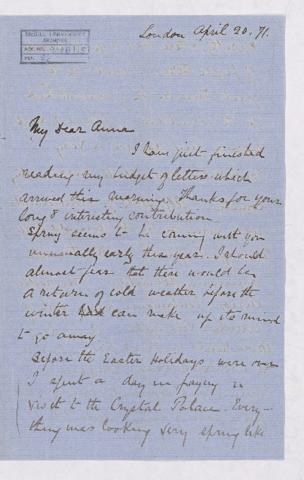 McGILL UNIVERSITY
ARCHIVES
ACC. NO.
REF.
London April 20. 71.
My dear Anna
I have just finished
reading my budget of letters which
arrived this morning. Thanks for your
long & interesting contribution
Spring seems to be coming with you
unusually early this year. I should
almost fear that there would be
a return of cold weather before the
winter can make up its mind
to go away
Before the Easter Holidays were over
I spent a day in paying a
visit to the Crystal Palace. Every-
thing was looking very spring like